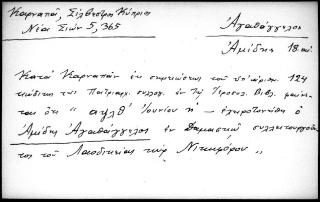 Καρναπᾶ, Σιλβέστρου Κύπριου
Νέα Σιών 5, 365
Ἀγαθάγγελος
Ἀμίδης 18 αι.
Κατά Καρναπᾶν ἐκ σημειώσεως τοῦ ὑπ' ἀριθμ. 124
κώδικος τῆς Πατριαρχ. συλλογ. ἐν τῇ Ἱεροσολ. Βιβλ. φαίνε-
ται ὅτι " αψλθ' Ἰουνίου η' - ἐχειροτονήθη ὁ
Ἀμίδης Ἀγαθάγγελος ἐν Δαμασκῷ συλλειτουργοῦν-
τος τοῦ Λαοδικείας κὺρ Νικηφόρου "